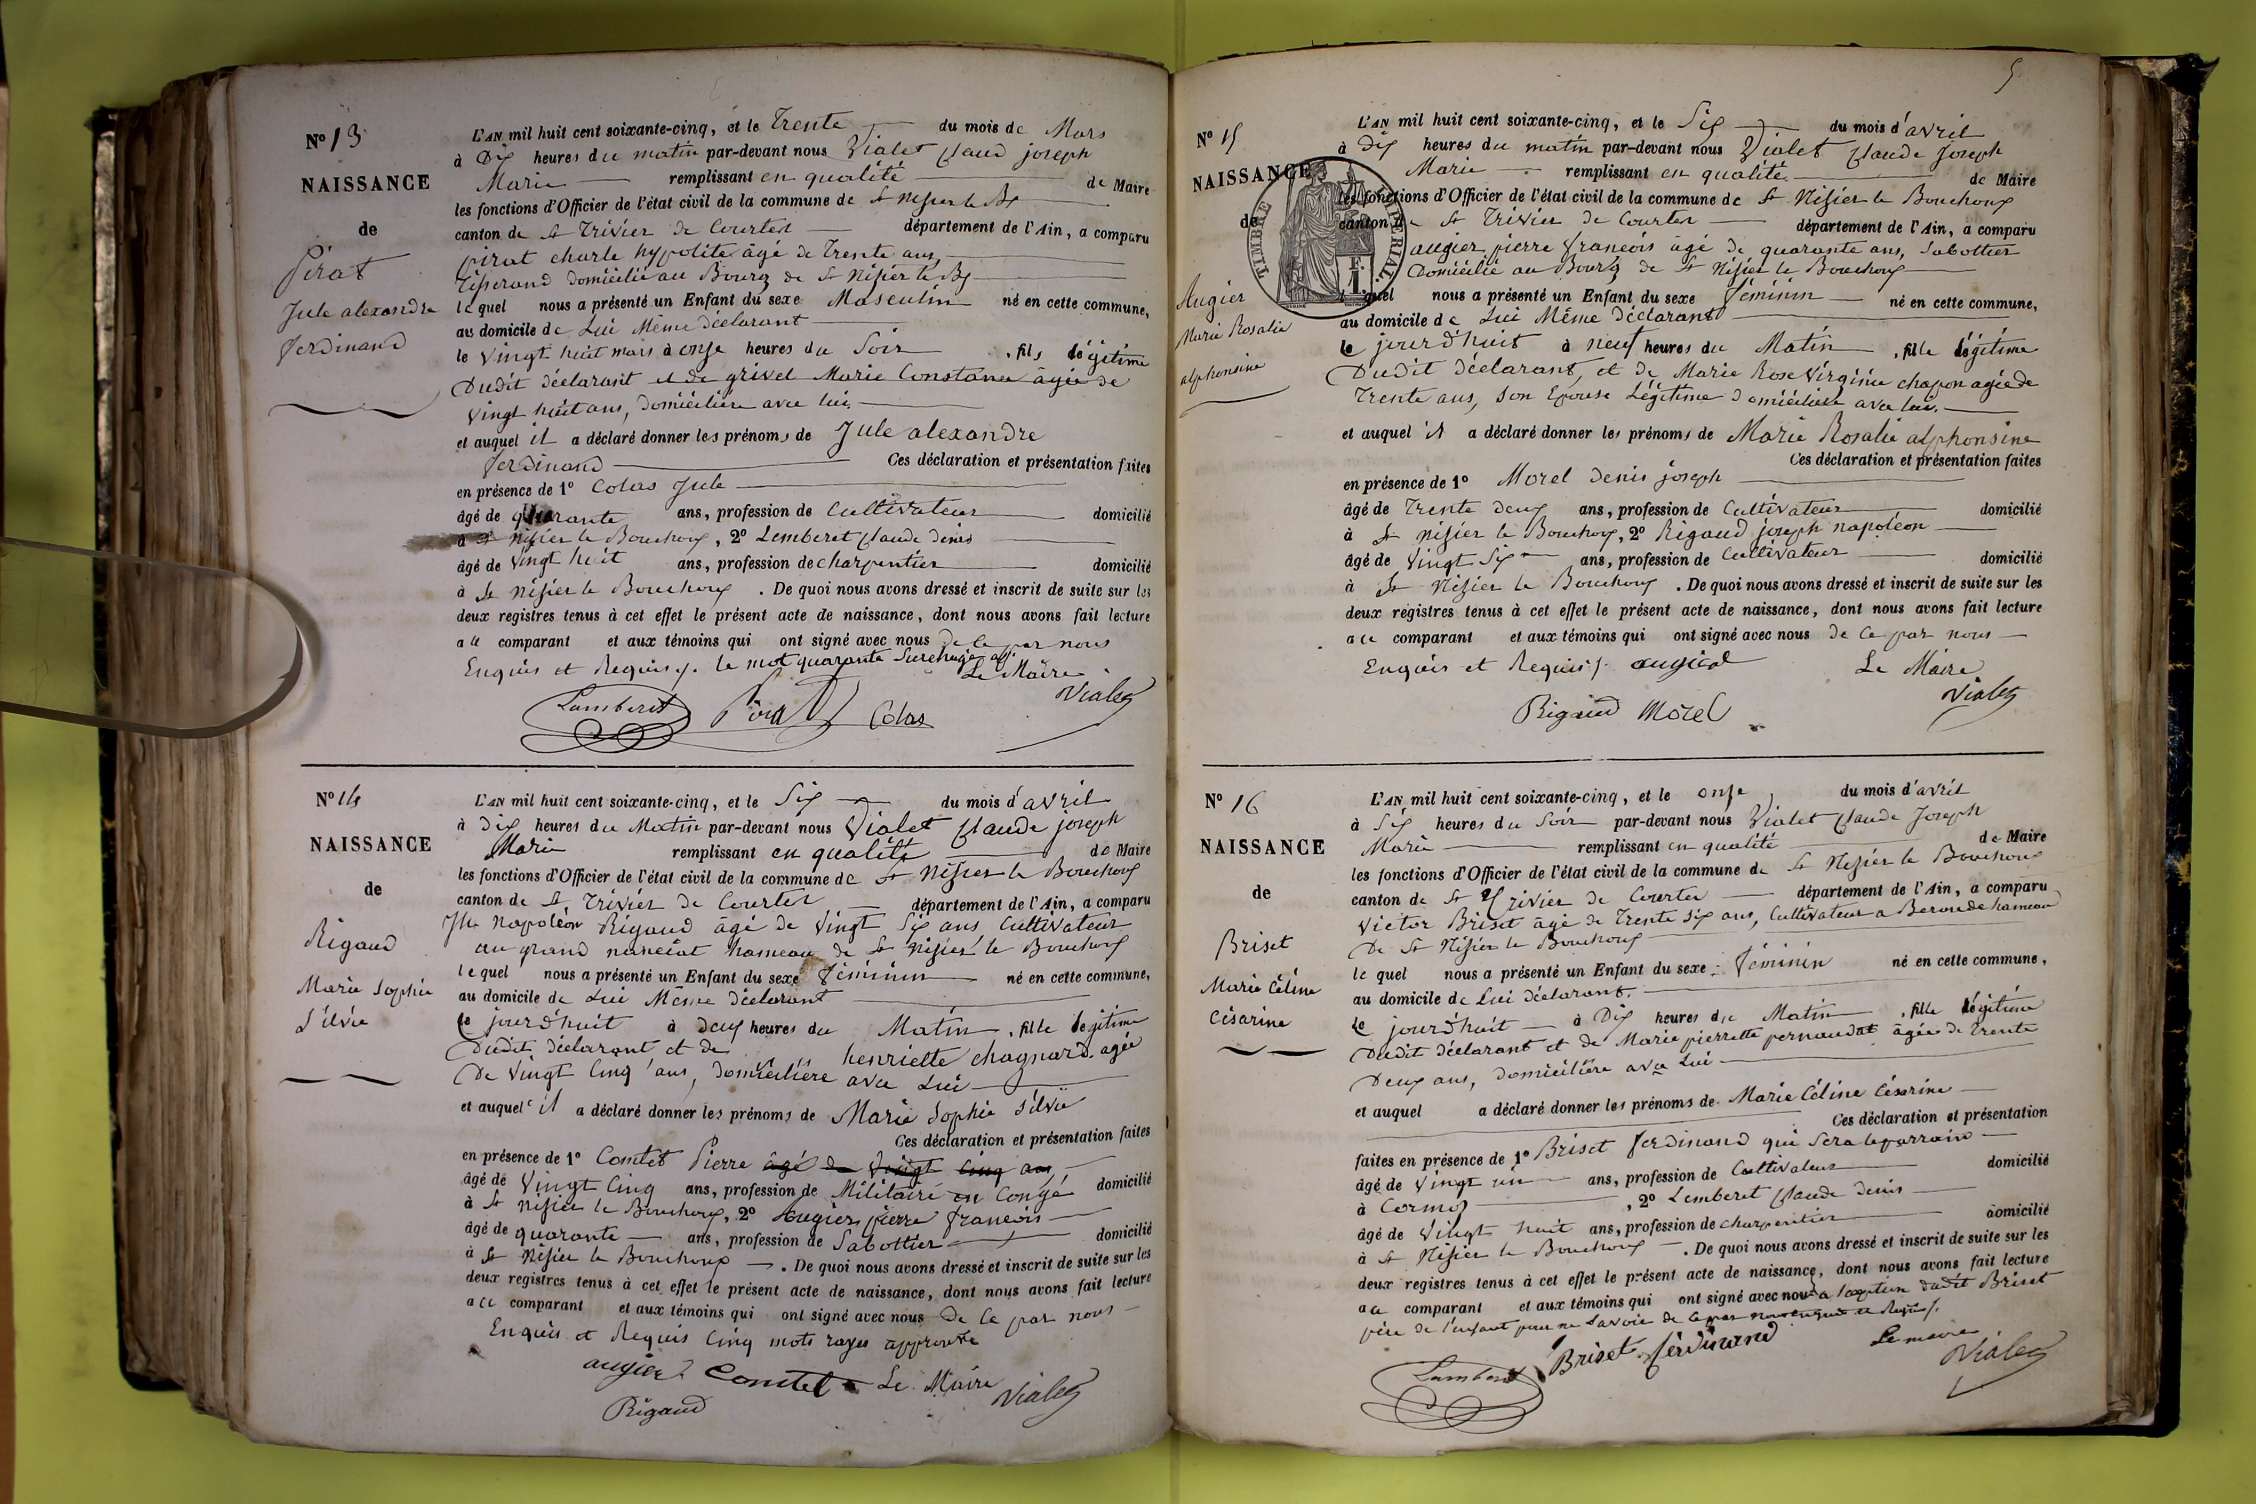 N° 13
NAISSANCE
de
Pirat
Jule alexandre
ferdinand
L'AN mil huit cent soixante-cinq, et le Trente du mois de Mars
à Dix heures du matin par-devant nous Vialet Claud joseph
Marie remplissant en qualité de Maire
les fonctions d'Officier de l'état civil de la commune de St Nisier le Bx
canton de St Trivier de Courtes département de l'Ain, a comparu
pirat charle hypolite âgé de Trente ans,
Tisserand domicilié au Bourg de St Nisier le Bx
lequel nous a présenté un Enfant du sexe Masculin né en cette commune,
au domicile de Lui Même déclarant
le vingt huit mars à onze heures du Soir, fils légitime
Dudit déclarant et de grivel Marie Constance âgée de
vingt huit ans, domiciliée avec lui
et auquel il a déclaré donner les prénoms de Jule alexandre
ferdinand Ces déclaration et présentation faites
en présence de 1° Colas Jule
âgé de quarante ans, profession de Cultivateur domicilié
à St Nisier le Bouchoux, 2° Lemberet Claude denis
âgé de vingt huit ans, profession de charpentier domicilié
à St Nisier le Bouchoux. De quoi nous avons dressé et inscrit de suite sur les
deux registres tenus à cet effet le présent acte de naissance, dont nous avons fait lecture
au comparant et aux témoins qui ont signé avec nous de ce par nous
Enquis et Requis. le mot quarante Surchargé app.
Le Maire
Lamberet Pirat Colas Vialet
N° 14
NAISSANCE
de
Rigaud
Marie Sophie
Silvie
L'AN mil huit cent soixante-cinq, et le Six du mois d'avril
à Dix heures du Matin par-devant nous Vialet Claude joseph
Marie remplissant en qualité de Maire
les fonctions d'Officier de l'état civil de la commune de St Nisier le Bouchoux
canton de St Trivier de Courtes département de l'Ain, a comparu
Jh Napoléon Rigaud âgé de vingt Six ans Cultivateur
au grand nanciat hameau de St Nisier le Bouchoux
lequel nous a présenté un Enfant du sexe féminin né en cette commune,
au domicile de Lui Même déclarant
le jourd'huit à deux heures du Matin, fille légitime
Dudit déclarant et de henriette chagnard agée
De vingt Cinq ans, domiciliére avec Lui
et auquel il a déclaré donner les prénoms de Marie Sophie Silvie
Ces déclaration et présentation faites
en présence de 1° Comtet Pierre âgé de vingt cinq ans
âgé de vingt Cinq ans, profession de Militaire en Congé domicilié
à St Nisier le Bouchoux, 2° Augier pierre françois
âgé de quarante ans, profession de Sabottier domicilié
à St Nisier le Bouchoux. De quoi nous avons dressé et inscrit de suite sur les
deux registres tenus à cet effet le présent acte de naissance, dont nous avons fait lecture
au comparant et aux témoins qui ont signé avec nous De Ce par nous
Enquis et Requis Cinq mots rayes approuvé
augier Comtet Le Maire
Rigaud Vialet
5
N° 15
NAISSANCE
de
Augier
Marie Rosalie
alphonsine
TIMBRE IMPERIAL
1 F.
L'AN mil huit cent soixante-cinq, et le Six du mois d'avril
à dix heures du matin par-devant nous Vialet Claude Joseph
Marie remplissant en qualité de Maire
les fonctions d'Officier de l'état civil de la commune de St Nisier le Bouchoux
canton de St Trivier de Courtes département de l'Ain, a comparu
augier pierre françois âgé de quarante ans, Sabottier
Domicilié au Bourg de St Nisier le Bouchoux
lequel nous a présenté un Enfant du sexe féminin né en cette commune,
au domicile de Lui Même déclarant
le jourd'huit à neuf heures du Matin, fille légitime
Dudit déclarant, et de Marie Rose Virginie chapon agée de
Trente ans, son Epouse Légitime domiciliée avec lui.
et auquel il a déclaré donner les prénoms de Marie Rosalie alphonsine
Ces déclaration et présentation faites
en présence de 1° Morel Denis joseph
âgé de Trente deux ans, profession de Cultivateur domicilié
à St Nisier le Bouchoux, 2° Rigaud joseph napoléon
âgé de vingt Six ans, profession de Cultivateur domicilié
à St Nisier le Bouchoux. De quoi nous avons dressé et inscrit de suite sur les
deux registres tenus à cet effet le présent acte de naissance, dont nous avons fait lecture
au comparant et aux témoins qui ont signé avec nous de Ce par nous
Enquis et Requis. augier Le Maire
Rigaud Morel Vialet
N° 16
NAISSANCE
de
Briset
Marie Céline
Césarine
L'AN mil huit cent soixante-cinq, et le onze du mois d'avril
à Six heures du Soir par-devant nous Vialet Claude Joseph
Marie remplissant en qualité de Maire
les fonctions d'Officier de l'état civil de la commune de St Nisier le Bouchoux
canton de St Trivier de Courtes département de l'Ain, a comparu
Victor Briset âgé de Trente Six ans, Cultivateur a hameau
De St Nisier le Bouchoux
lequel nous a présenté un Enfant du sexe féminin né en cette commune,
au domicile de Lui déclarant.
le jourd'huit à Dix heures du Matin, fille légitime
Dudit déclarant et de Marie pierrette pernaudat âgée de Trente
Deux ans, domiciliére avec Lui
et auquel a déclaré donner les prénoms de Marie Céline Césarine
Ces déclaration et présentation
faites en présence de 1° Briset ferdinand qui Sera le parrain
âgé de vingt un ans, profession de Cultivateur domicilié
à Cormoz, 2° Lemberet Claude denis
âgé de vingt huit ans, profession de charpentier domicilié
à St Nisier le Bouchoux. De quoi nous avons dressé et inscrit de suite sur les
deux registres tenus à cet effet le présent acte de naissance, dont nous avons fait lecture
au comparant et aux témoins qui ont signé avec nous a l'exeption dudit Briset
père de l'enfant pour ne Savoir de ce par nous enquis et Requis.
Lamberet Briset ferdinand Le maire
Vialet